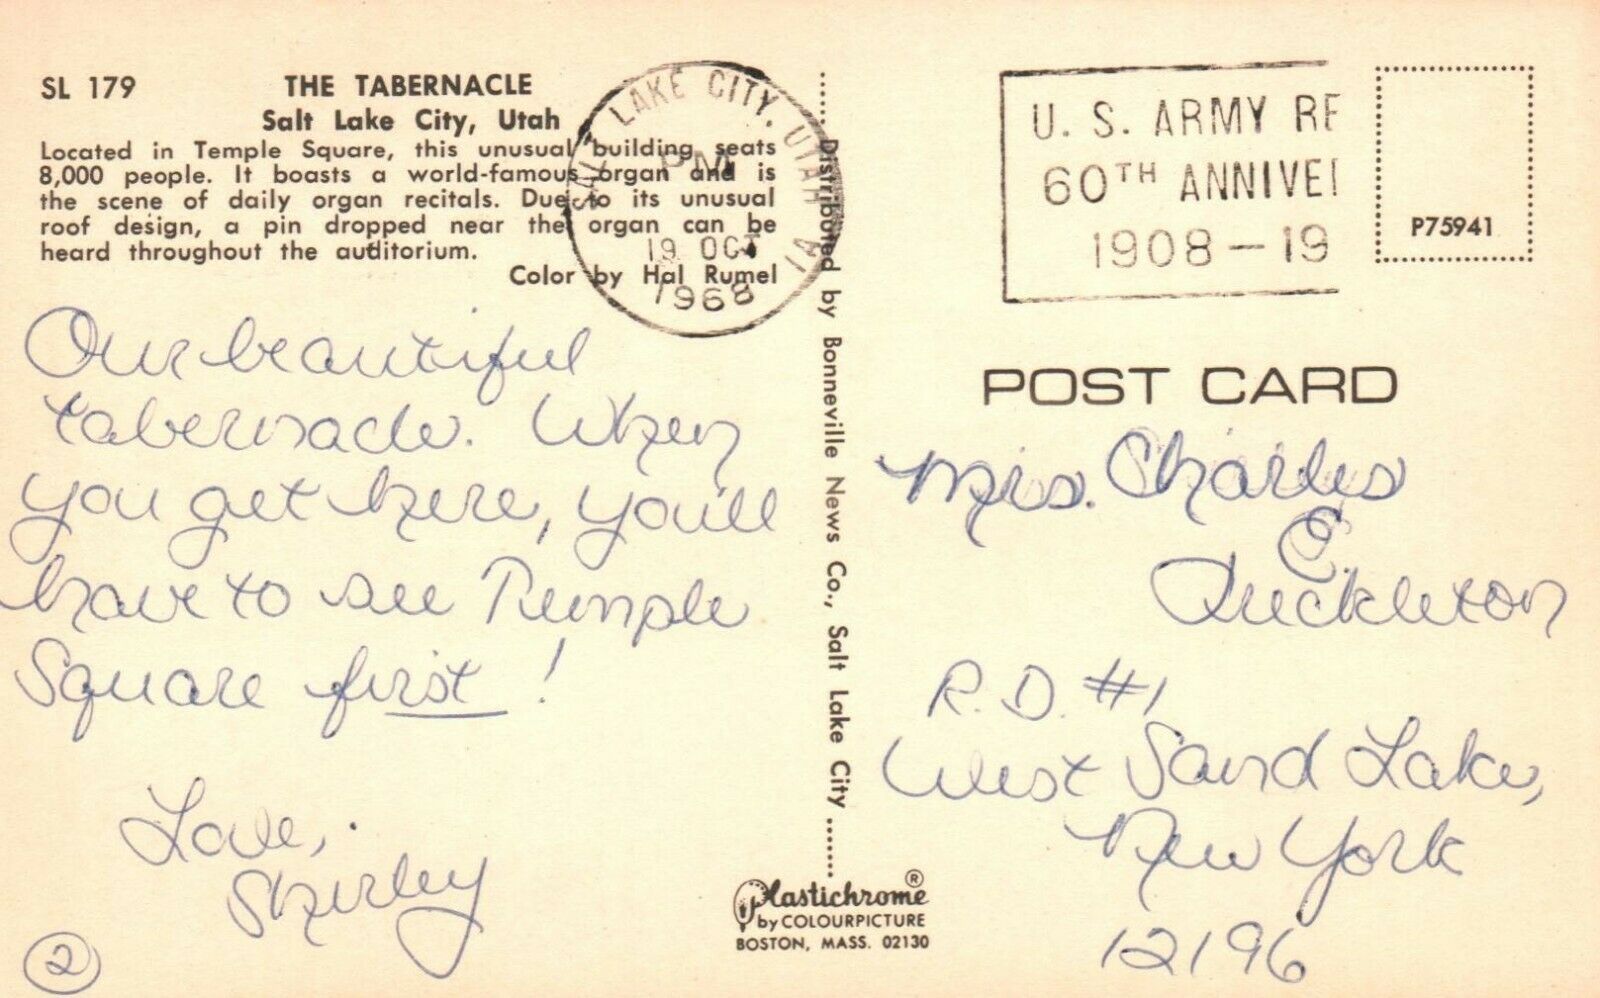 SL 179 THE TABERNACLE
Salt Lake City, Utah
Located in Temple Square, this unusual building seats
8,000 people. It boasts a world-famous organ and is
the scene of daily organ recitals. Due to its unusual
roof design, a pin dropped near the organ can be
heard throughout the auditorium.
Color by Hal Rumel
SALT LAKE CITY, UTAH
PM
19 OCT
1968
1A
Our beautiful
tabernacle. When
you get here, you'll
have to see Temple
Square first!
Love,
Shirley
2
Distributed by Bonneville News Co., Salt Lake City
Plastichrome ®
by COLOURPICTURE
BOSTON, MASS. 02130
U. S. ARMY RE
60TH ANNIVE
1908-19
P75941
POST CARD
Mrs. Charles
E.
R.D. #1
West Sand Lake,
New York
12196